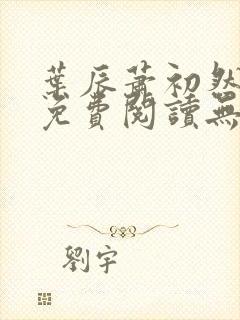 葉辰蕭初然
免費閱讀無
劉宇